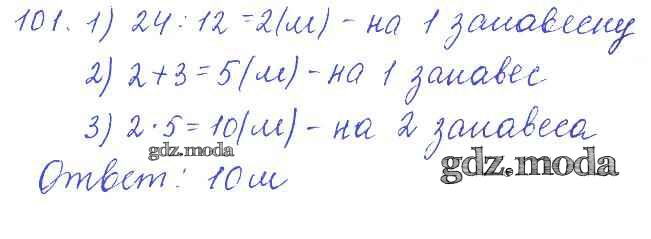 101. 1) 24 : 12 = 2 (м) - на 1 занавеску
2) 2 + 3 = 5 (м) - на 1 занавес
3) 2 · 5 = 10 (м) - на 2 занавеса
gdz.moda
gdz.moda
Ответ: 10 м